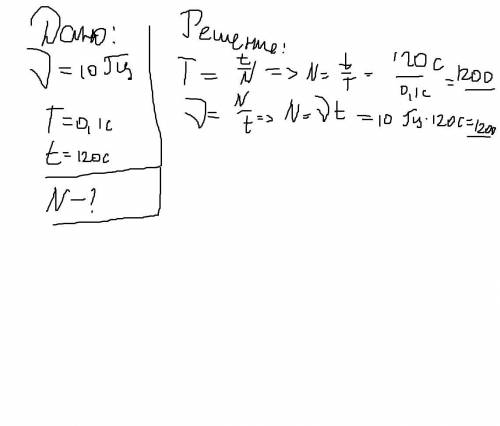 Дано:
ν = 10 Гц
T = 0,1с
t = 120с
N - ?
Решение:
T = t/N => N = t/T = 120с/0,1с = 1200
ν = N/t => N = νt = 10 Гц · 120с = 1200